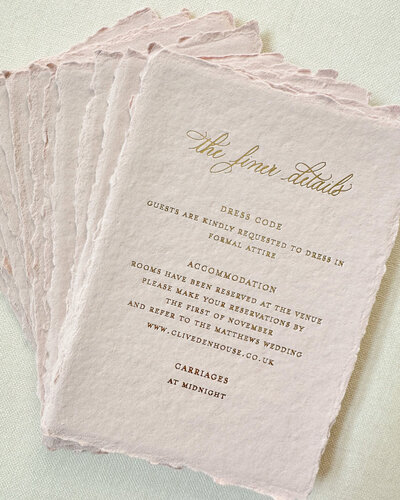 the finer details
DRESS CODE
GUESTS ARE KINDLY REQUESTED TO DRESS IN
FORMAL ATTIRE
ACCOMMODATION
ROOMS HAVE BEEN RESERVED AT THE VENUE
PLEASE MAKE YOUR RESERVATIONS BY
THE FIRST OF NOVEMBER
AND REFER TO THE MATTHEWS WEDDING
WWW.CLIVEDENHOUSE.CO.UK
CARRIAGES
AT MIDNIGHT